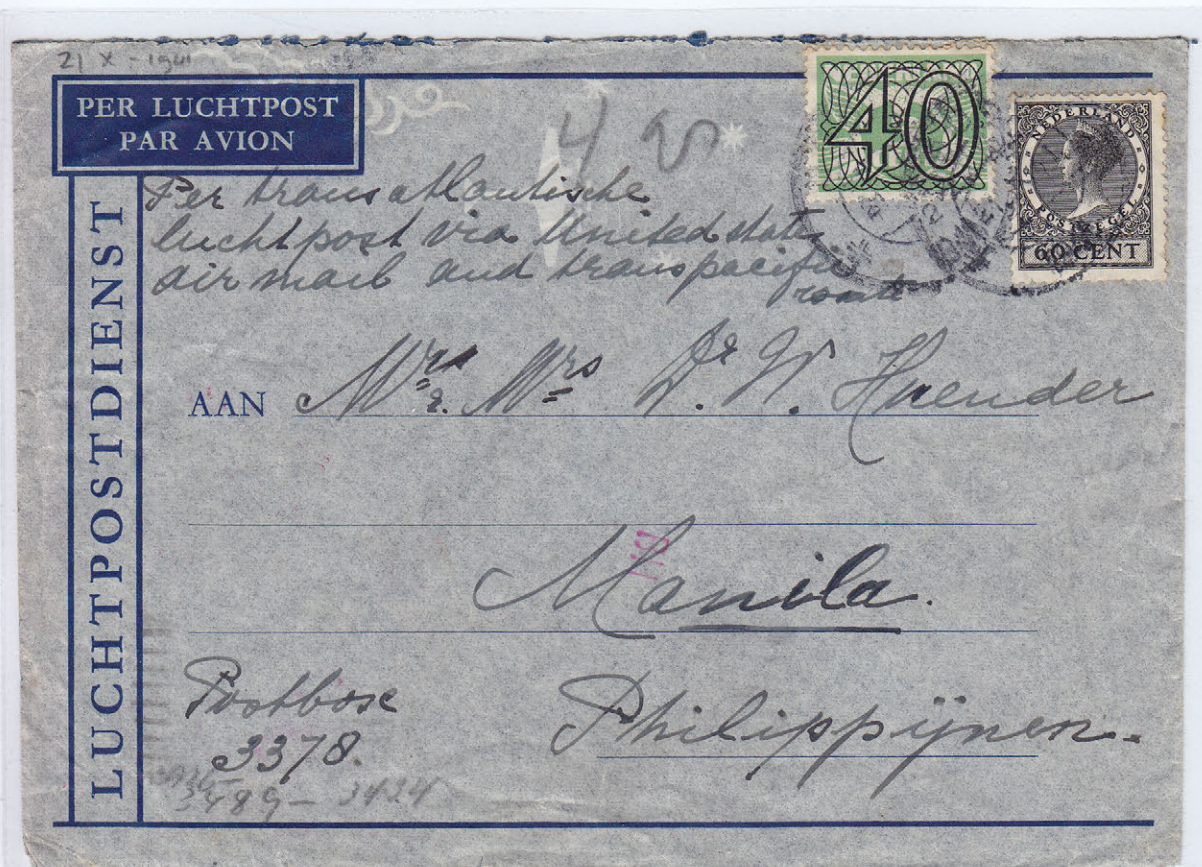 21 X - 1941
PER LUCHTPOST
PAR AVION
LUCHTPOSTDIENST
40
NEDERLAND
POSTZEGEL
60 CENT
Per transatlantische
luchtpost via United states
air mail and transpacific
route
AAN Mrs & Mrs Dr W. Haender
Manila.
Philippijnen.
Postboxe
3378.
3489 - 3424